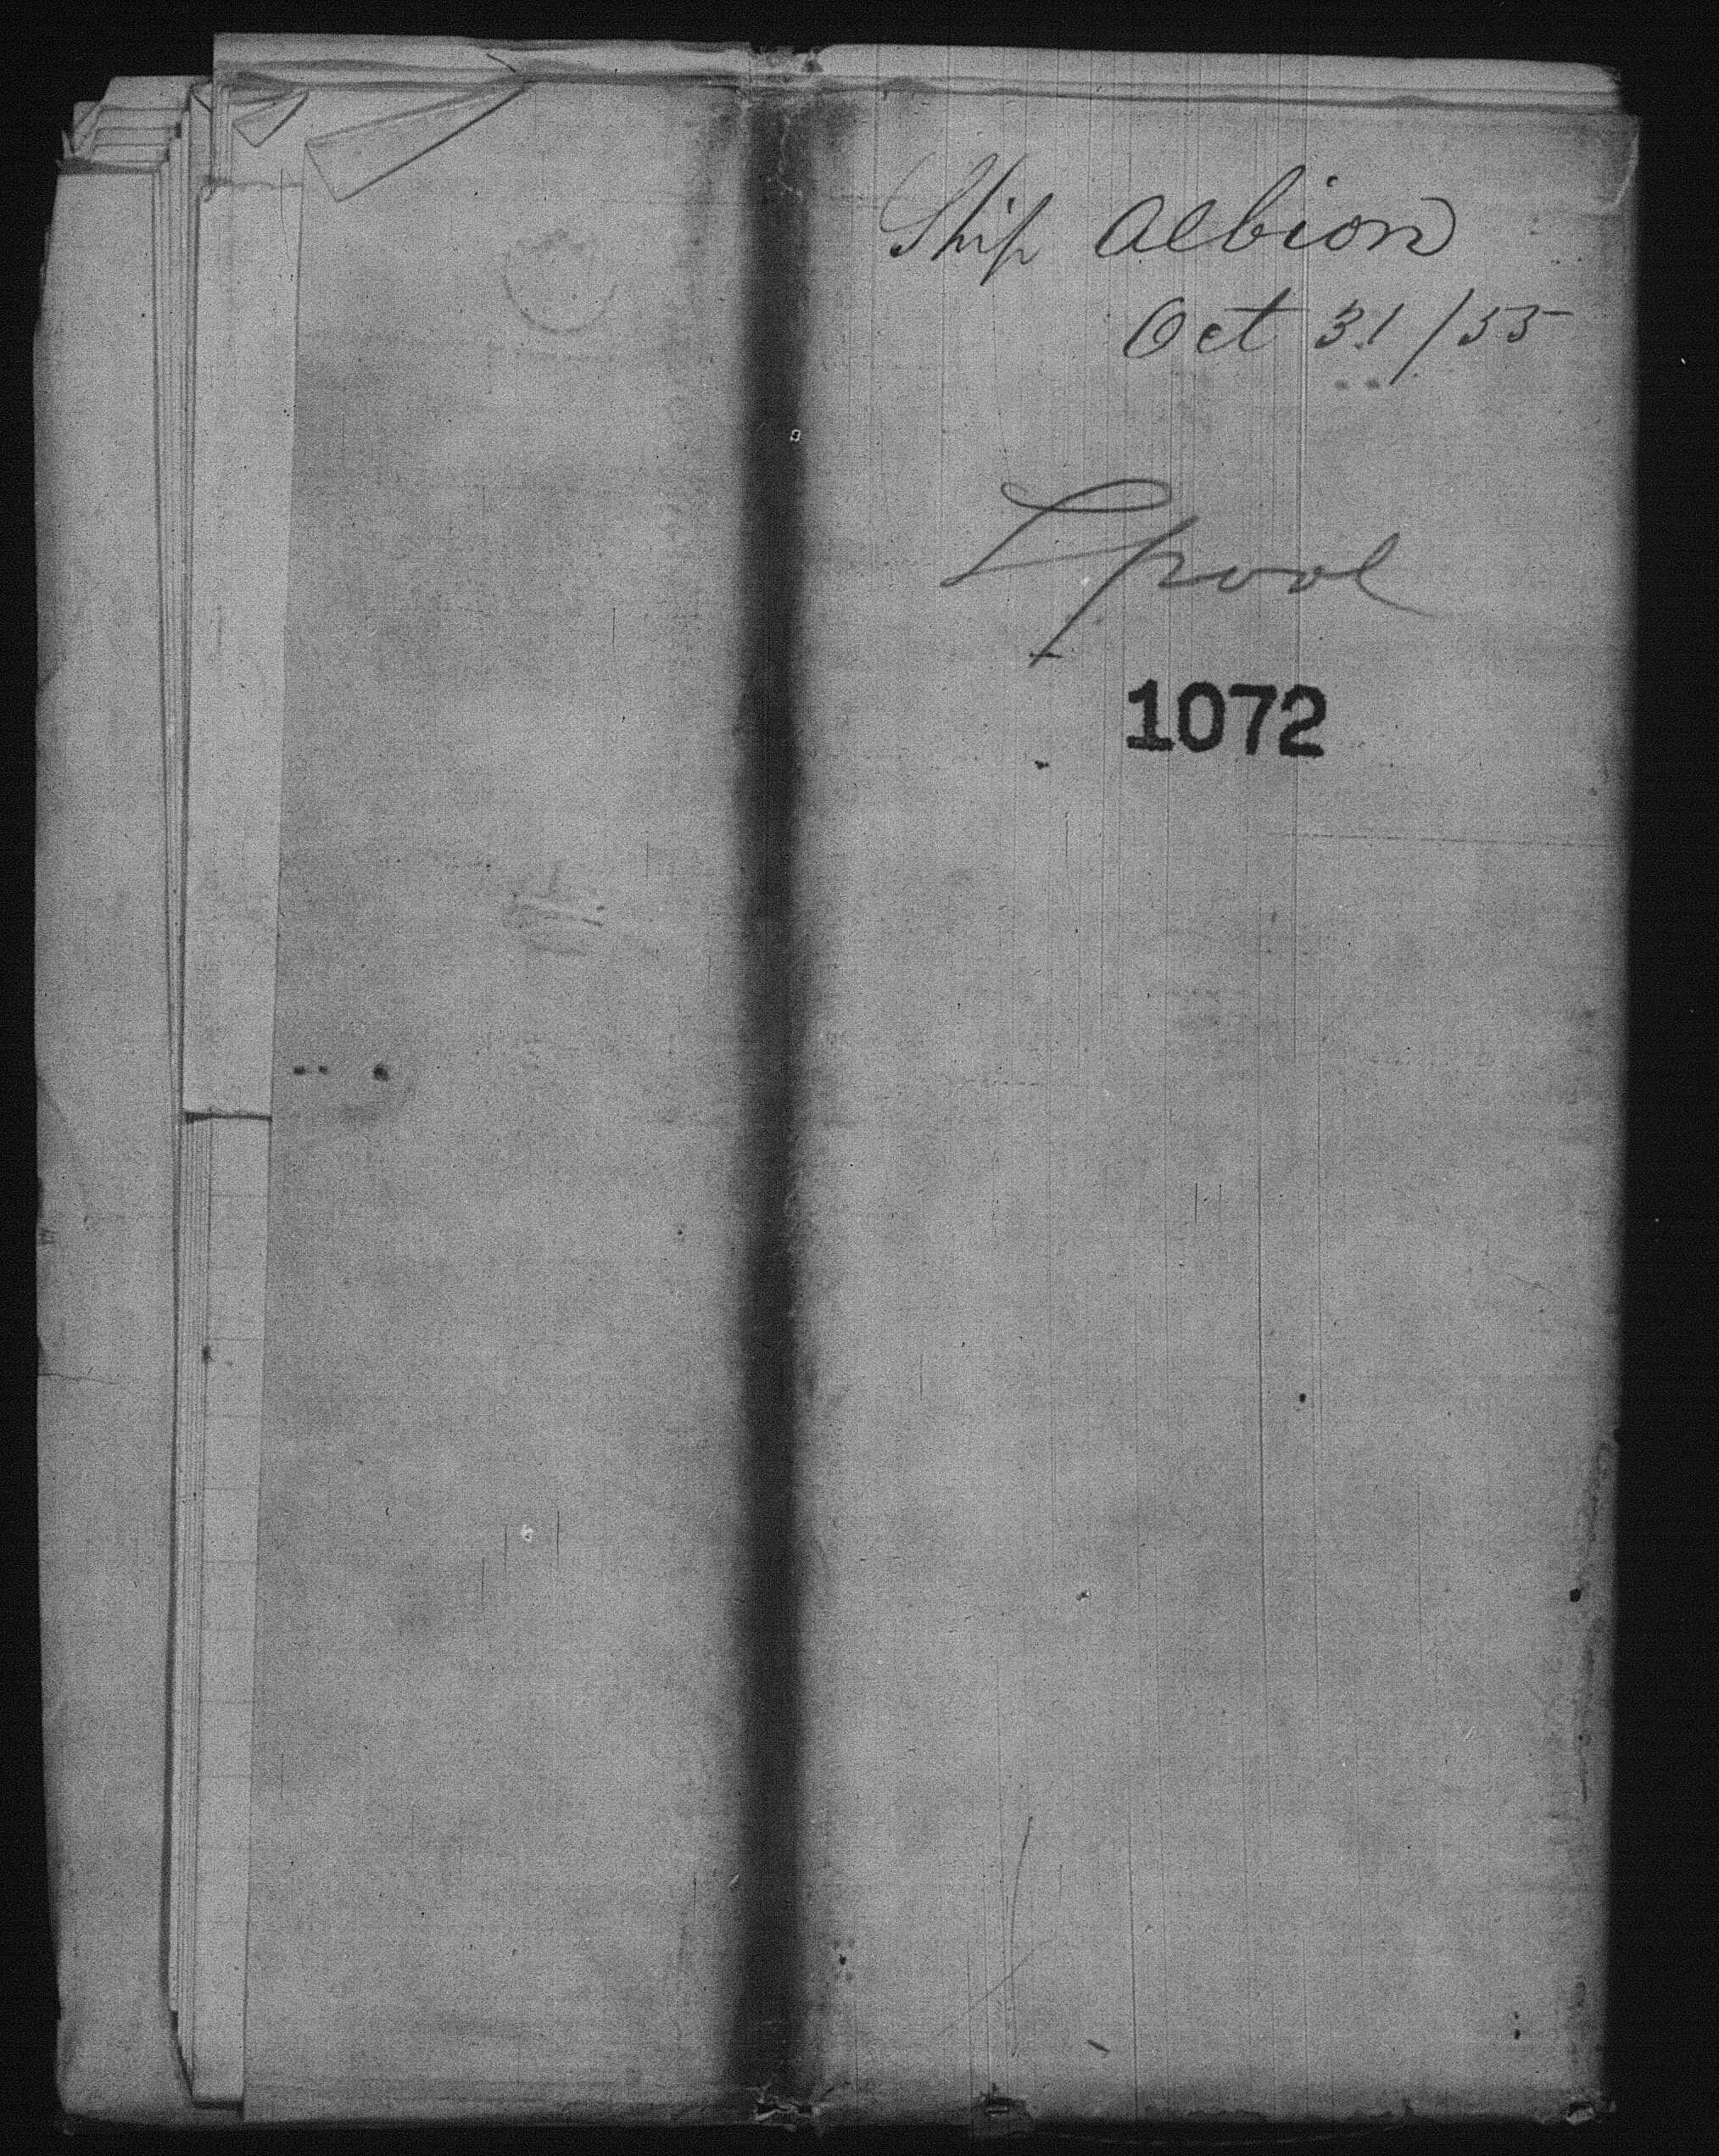 Ship Albion
Oct 31/55
Lpool
1072